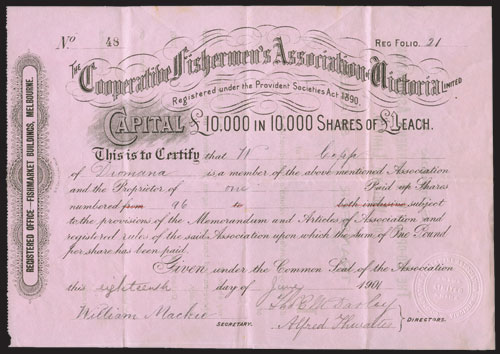 No 48 REG FOLIO. 21
THE Cooperative Fishermen's Association of Victoria LIMITED
Registered under the Provident Societies Act 1890.
CAPITAL £10.000 IN 10.000 SHARES OF £1 EACH.
This is to Certify that W Copp
of Dromana is a member of the above mentioned Association
and the Proprietor of one Paid up Shares
numbered from 96 to both inclusive subject
to the provisions of the Memorandum and Articles of Association and
registered rules of the said Association upon which the sum of One Pound
per share has been paid.
Given under the Common Seal of the Association
this eighteenth day of Jany 1901
William Mackie
SECRETARY.
Alfred
DIRECTORS.
REGISTERED OFFICE – FISHMARKET BUILDINGS, MELBOURNE.